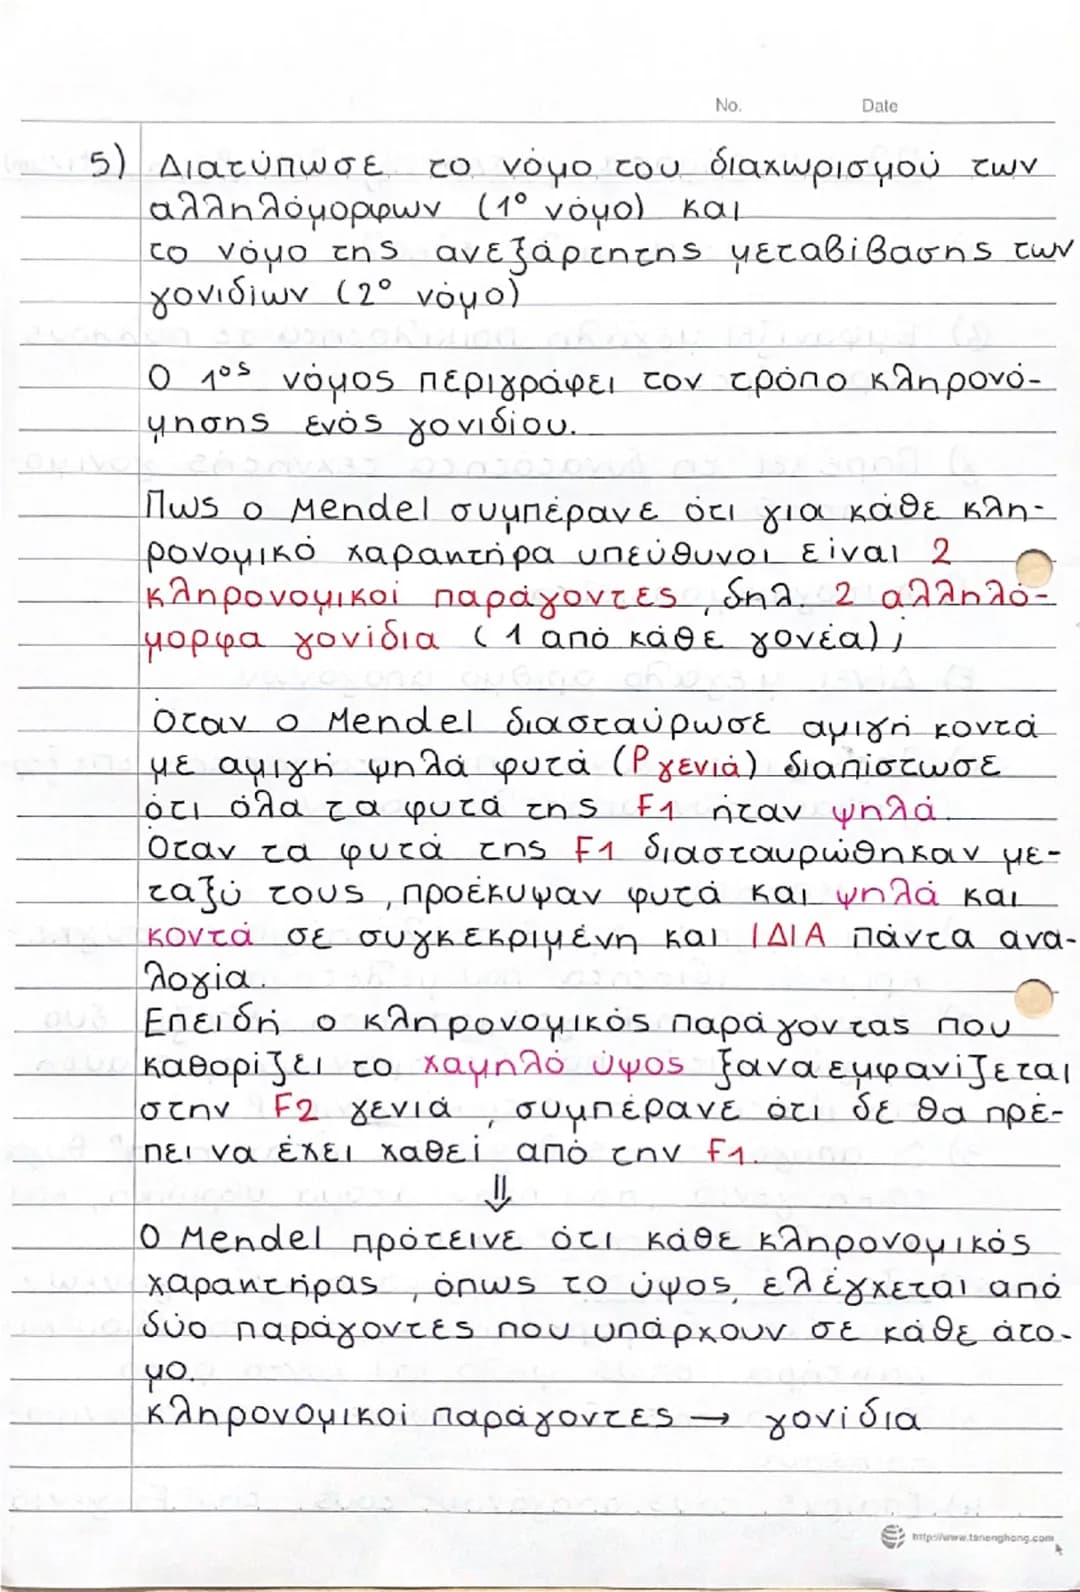 No.
Date
5) Διατύπωσε το νόμο του διαχωρισμού των
αλληλόμορφων (1° νόμο) και
το νόμο της ανεξάρτητης μεταβίβασης των
γονιδίων (2° νόμο)
Ο 1ος νόμος περιγράφει τον τρόπο κληρονό-
μησης ενός γονιδίου.
Πως ο Mendel συμπέρανε ότι για κάθε κλη-
ρονομικό χαρακτήρα υπεύθυνοι είναι 2
κληρονομικοί παράγοντες, δηλ. 2 αλληλό-
μορφα γονίδια (1 από κάθε γονέα);
Όταν ο Mendel διασταύρωσε αμιγή κοντά
με αμιγή ψηλά φυτά (P γενιά) διαπίστωσε
ότι όλα τα φυτά της F1 ήταν ψηλά.
Όταν τα φυτά της F1 διασταυρώθηκαν με-
ταξύ τους, προέκυψαν φυτά και ψηλά και
κοντά σε συγκεκριμένη και ΙΔΙΑ πάντα ανα-
λογία.
Επειδή ο κληρονομικός παράγοντας που
καθορίζει το χαμηλό ύψος ξαναεμφανίζεται
στην F2 γενιά, συμπέρανε ότι δε θα πρέ-
πει να έχει χαθεί από την F1.
⇓
Ο Mendel πρότεινε ότι κάθε κληρονομικός
χαρακτήρας, όπως το ύψος, ελέγχεται από
δύο παράγοντες που υπάρχουν σε κάθε άτο-
μο.
κληρονομικοί παράγοντες → γονίδια
http://www.tanenghong.com